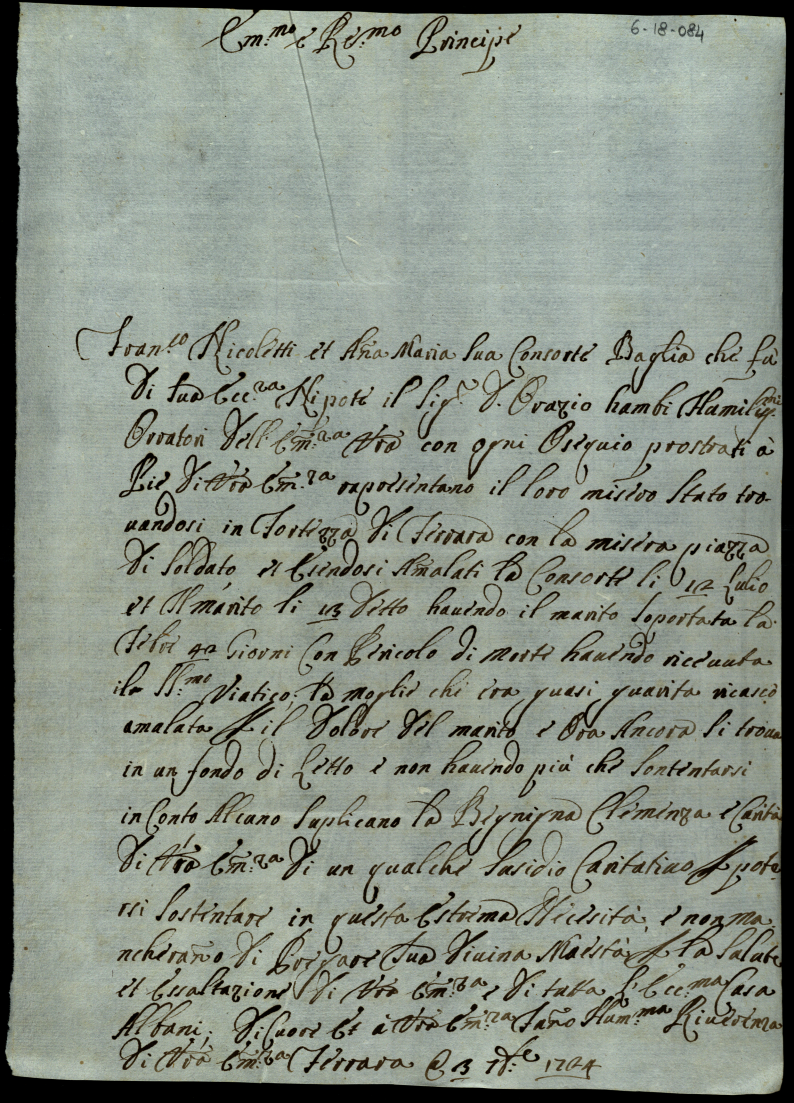 6-18-084
Em.mo e Re.mo Principe
Fran.co Nicoletti et Aña Maria Sua Consorte Baglia che fù
Di Sua Ecc.za Nipote il Sig.r D. Orazio hambi Hamilis.mi
Orratori Dell'Em.za Vrã con ogni Osequio prostrati à
Piè Di Vrã Em.za rapresentano il loro misero Stato tro-
uandosi in Fortezza Di Ferrara con la misera piazza
Di Soldato et Esendosi Amalati la Consorte li 12 Lulio
et Il marito li 13 Detto hauendo il marito Soportata la
Febre 42 Giorni Con Pericolo di Morte hauendo riceuuta
il SS.mo Viatico, la moglie che era quasi guarita ricascò
amalata p il Dolore Del marito e Ora Ancora Si troua
in un fondo di Letto e non hauendo più che Sontentarsi
in Conto Alcuno Suplicano la Begnigna Clemenza e Carità
Di Vrã Em.za Di un qualche Susidio Caritatiuo p pote-
rsi Sostentare in questa Estrema Necesità, e non ma-
ncherano Di Pregare Sua Diuina Maestà p la Salute
et Essaltazione Di Vrã Em.za e Di tutta l'Ecc.ma Casa
Albani; Di Cuore Et à Vrã Em.za Fano Hum.ma Riuerenza
Di Vrã Em.za Ferrara 3 7bre 1724